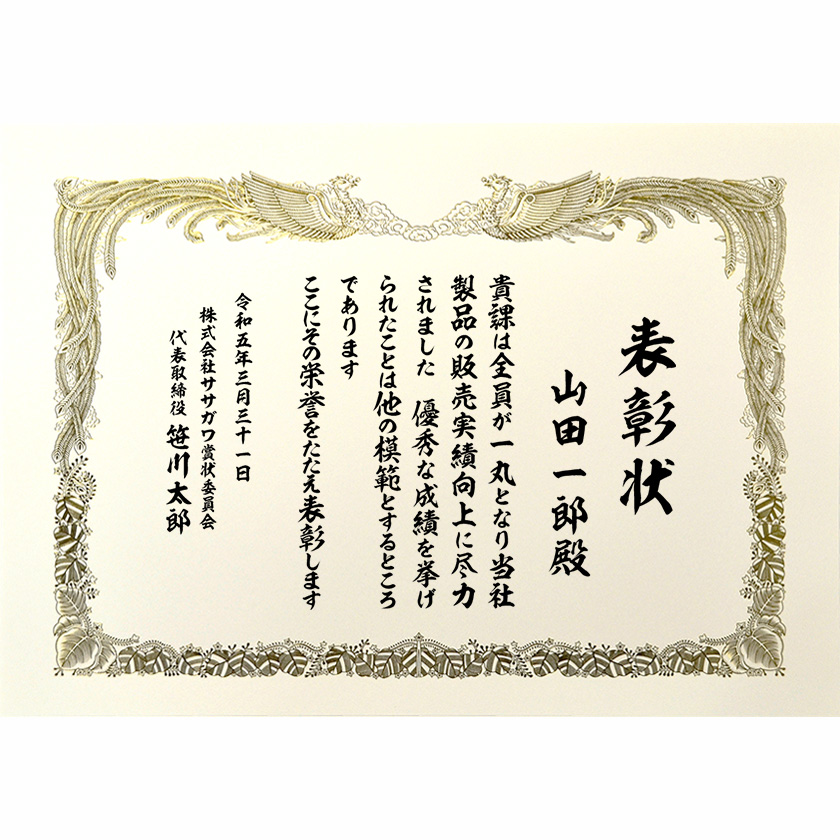 表彰状
山田一郎殿
貴課は全員が一丸となり当社
製品の販売実績向上に尽力
されました　優秀な成績を挙げ
られたことは他の模範とするところ
であります
ここにその栄誉をたたえ表彰します
令和五年三月三十一日
株式会社ササガワ賞状委員会
代表取締役　笹川太郎